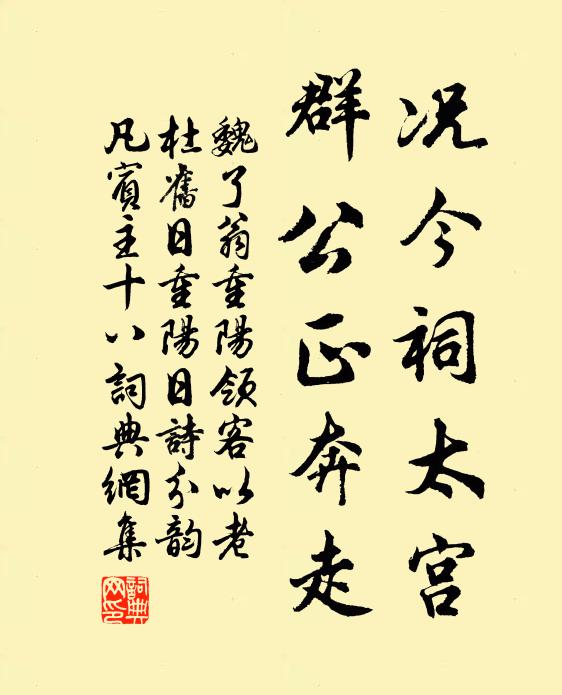 况今祠太宫
群公正奔走
魏了翁重陽領客以老
杜舊日重陽日詩分韵
凡賓主十八詞典網集
詞典
网印